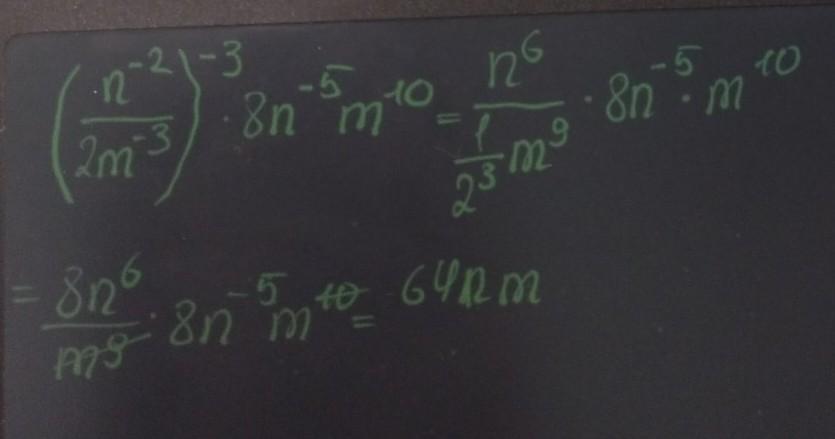 (n⁻²/2m⁻³)⁻³ · 8n⁻⁵m¹⁰ = n⁶/(1/2³ m⁹) · 8n⁻⁵ · m¹⁰
= 8n⁶/m⁹ · 8n⁻⁵m¹⁰ = 64nm